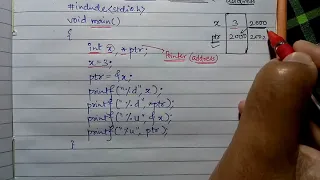 #include<stdio.h>
void main()
{
int x, *ptr; Pointer (address)
x=3;
ptr = &x;
printf("%d", x);
printf("%d", *ptr);
printf("%u", &x);
printf("%u", ptr);
}
address
x 3 2000
ptr 2000